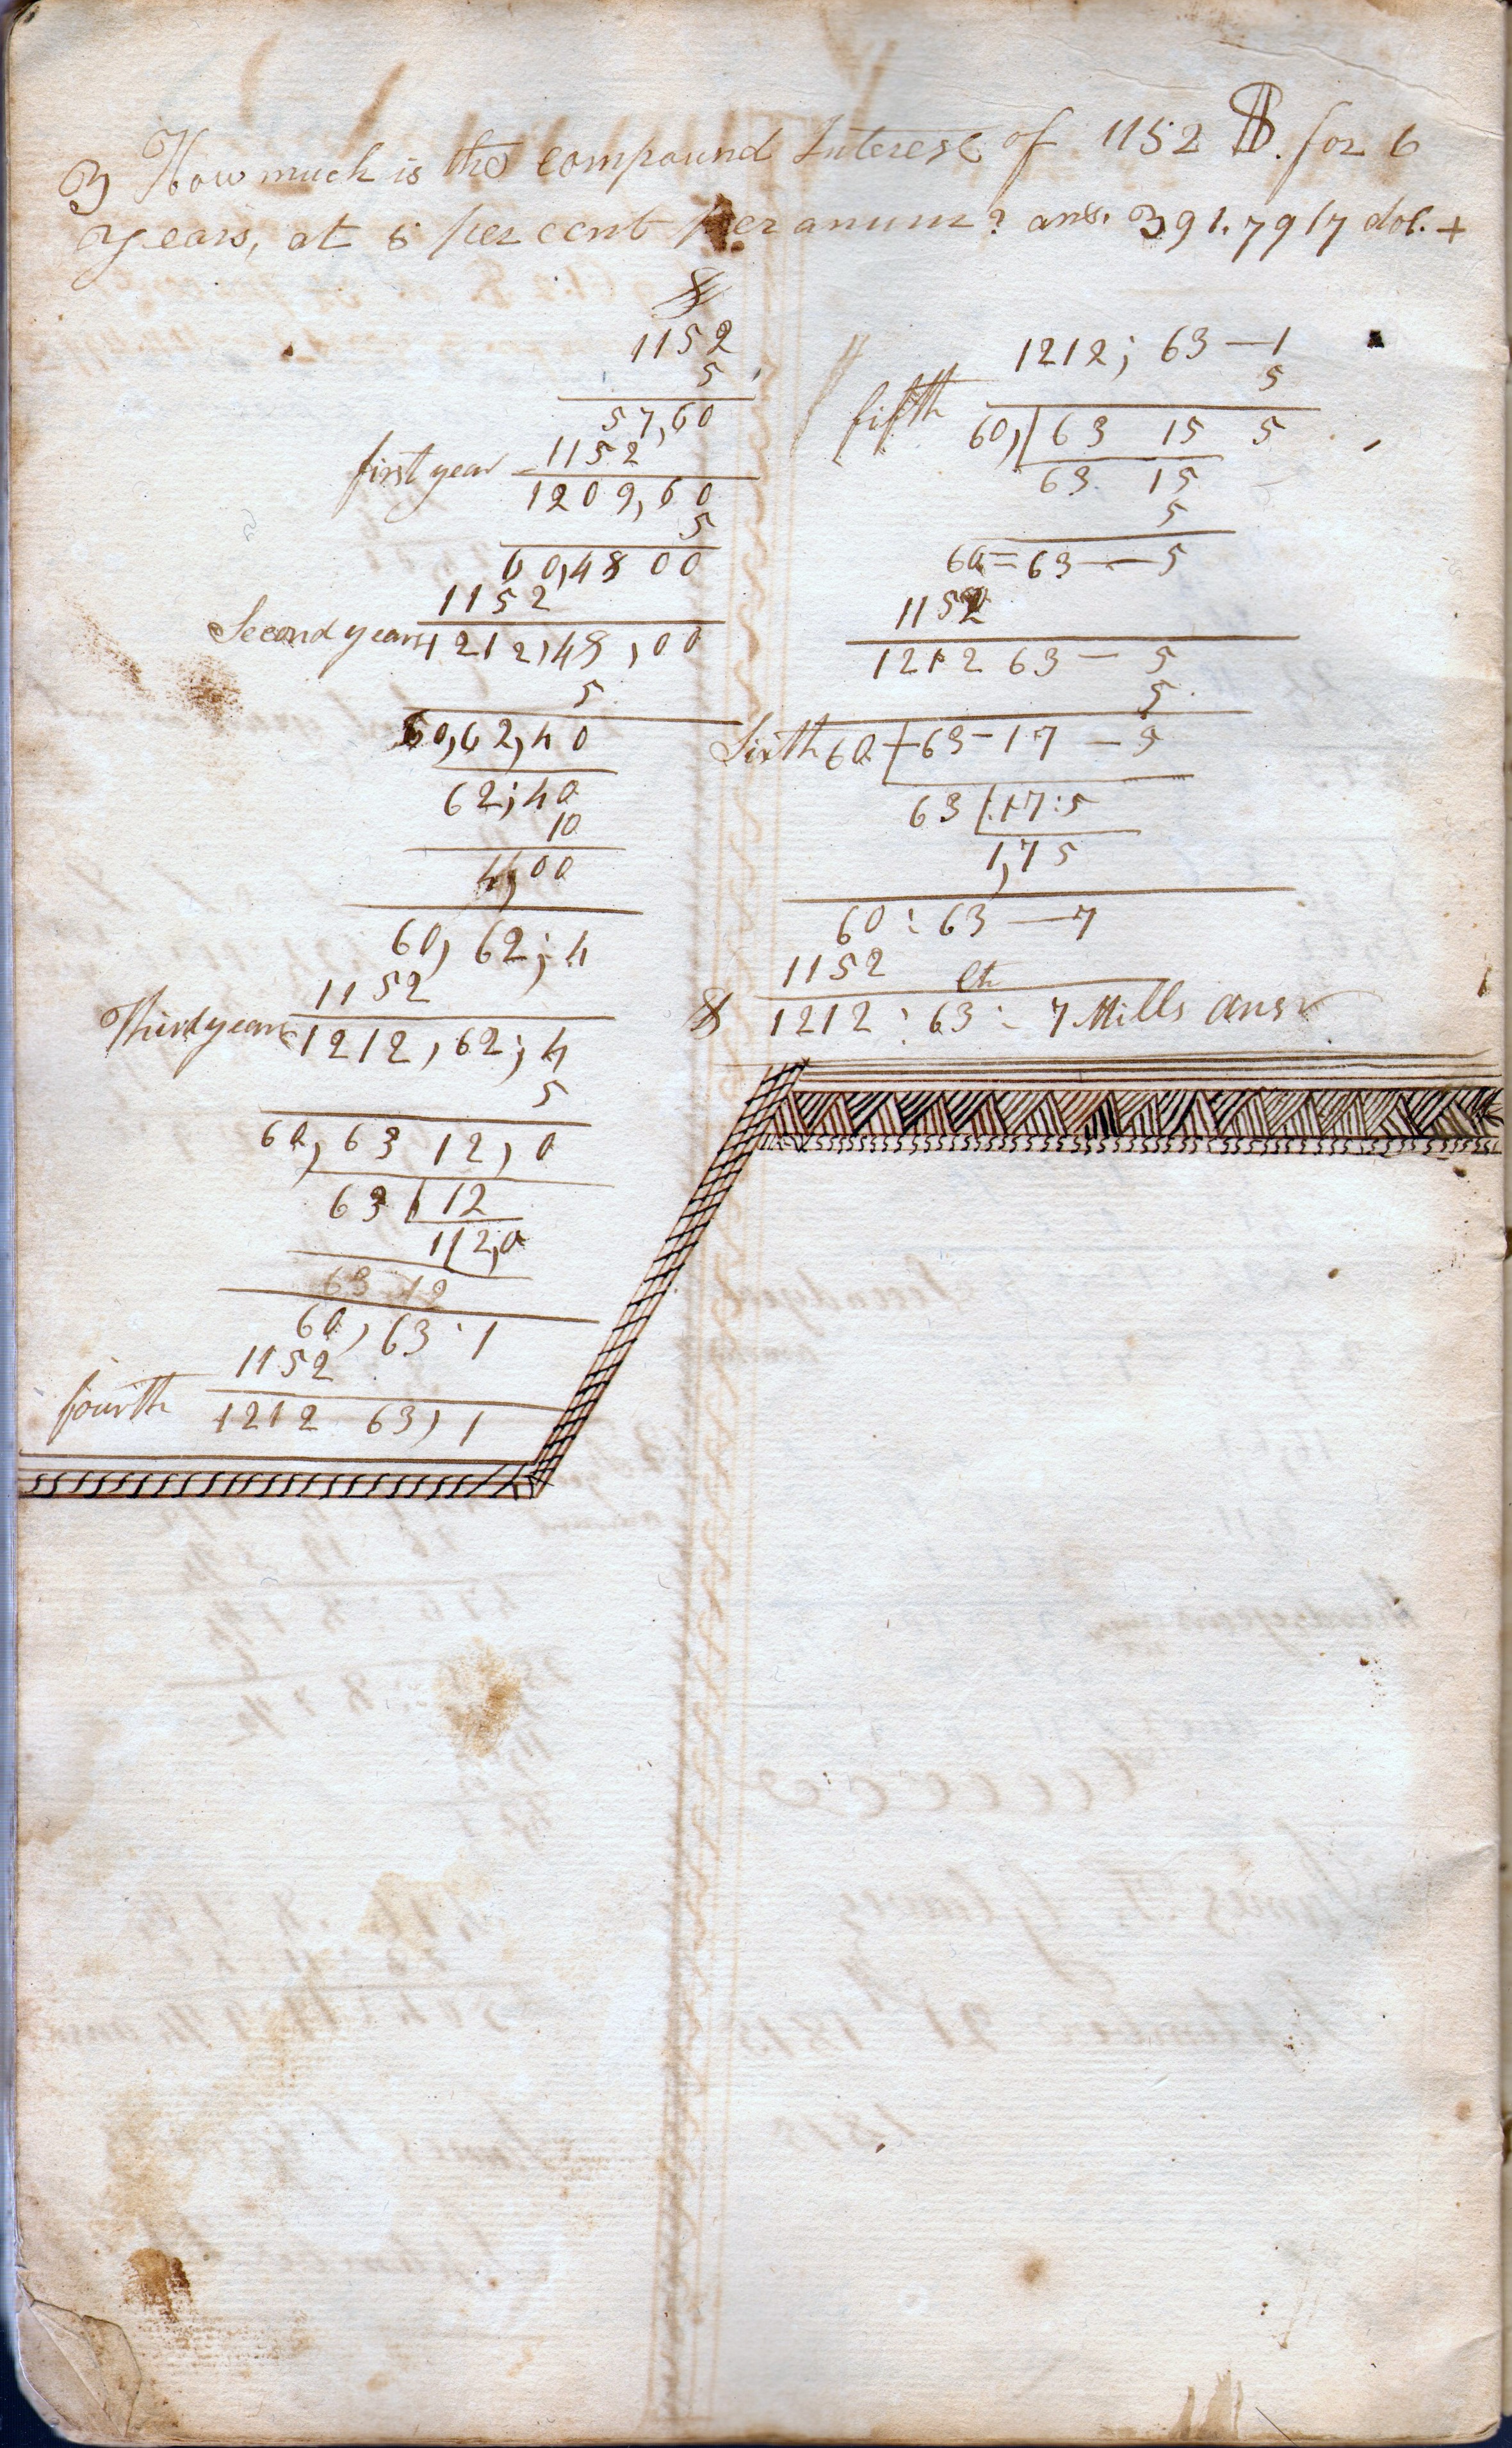 3 How much is the compound Interest of 1152 $. for 6
years, at 5 per cent per anum? ans. 391.7917 dol. +
$
1152
5
57,60
first year 1152
1209,60
5
60,48 00
1152
Second year 1212,48,00
5
60,62,40
62;40
10
4,00
60, 62; 4
1152
Third year 1212, 62; 4
5
60, 63 12, 0
63 12
112,0
63 12
60, 63 . 1
1152
fourth 1212 63, 1
1212; 63 — 1
5
fifth 60, 63 15 5
63 15
5
60 = 63 — 5
1152
1212 63 — 5
5
Sixth 60 + 63 - 17 — 5
63 17:5
1,75
60 : 63 — 7
1152
$ 1212 : 63 : 7 Mills ans